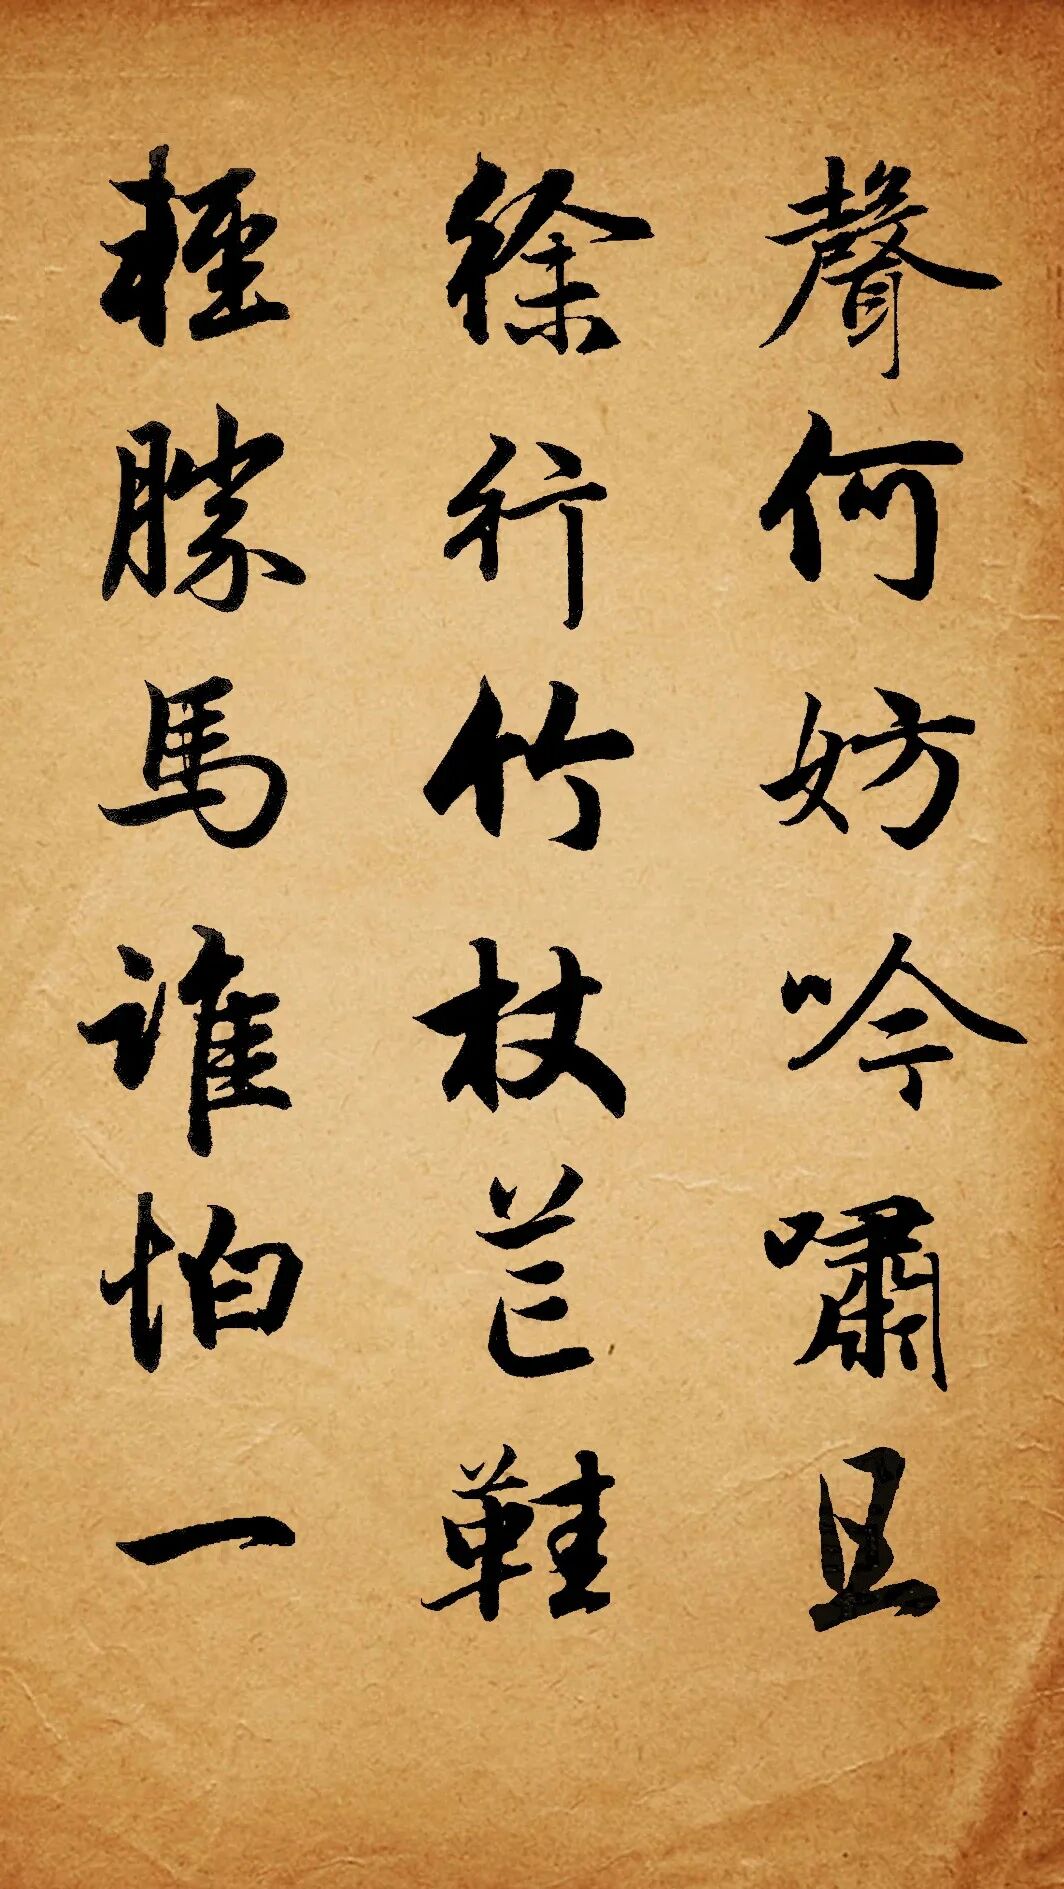 聲何妨吟嘯且
徐行竹杖芒鞋
輕勝馬誰怕一